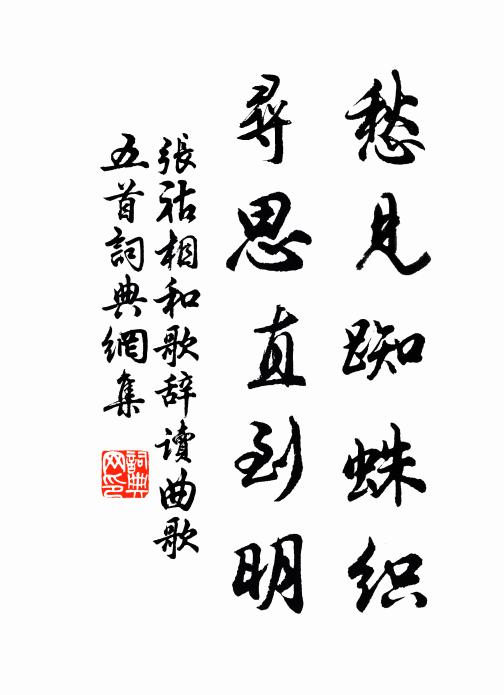 愁見踟蛛織
尋思直到明
張祜相和歌辞讀曲歌
五首詞典網集
詞典
网印